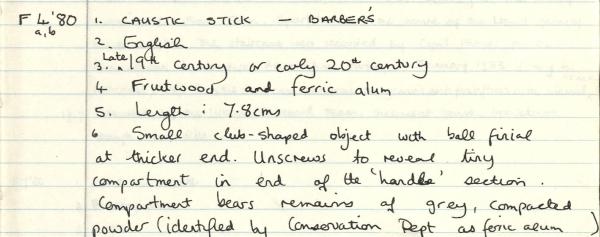 F 4'80 1. CAUSTIC STICK — BARBER'S
a,b 2. English
3. Late 19th century or early 20th century
4 Fruitwood and ferric alum
5. Length : 7.8cms
6 Small club-shaped object with ball finial
at thicker end. Unscrews to reveal tiny
compartment in end of the 'handle' section.
Compartment bears remains of grey, compacted
powder (identified by Conservation Dept as ferric alum)